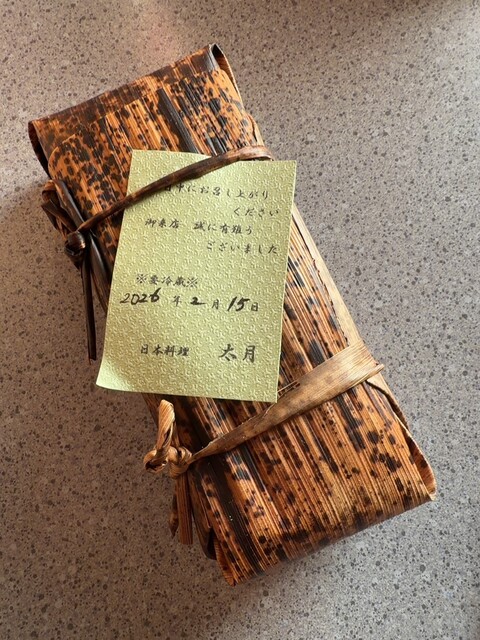 日中にお召し上がり
ください
御来店 誠に有難う
ございました
※要冷蔵※
2026年2月15日
日本料理 太月